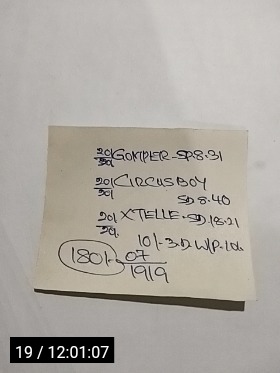 20/ GOMPER-SP8.31
20/ CIRCUSBOY
SD8.40
20/ X'TELLE.SD18.21
10/-3.D.W/P.
180/- 07
1919
19 / 12:01:07